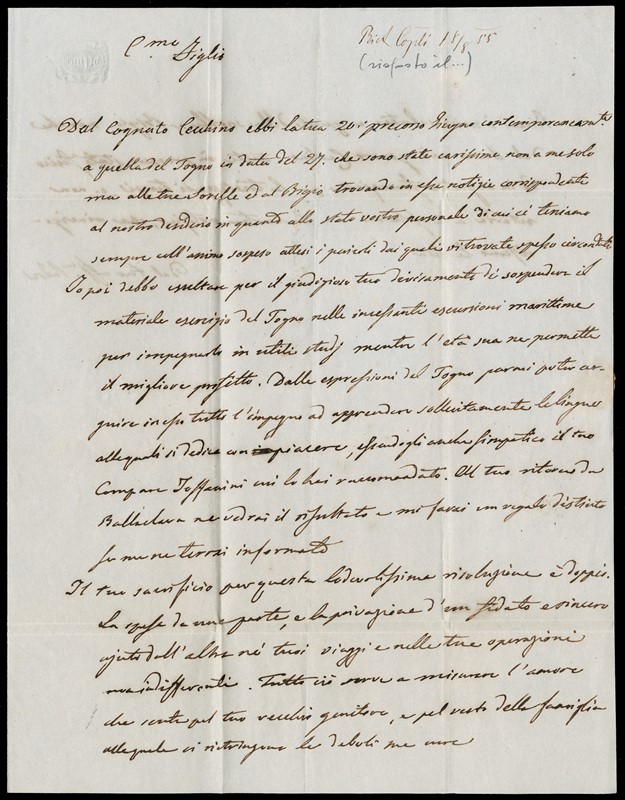 C.mo Figlio
Ricd Copli 18/8 55
(risposto il...)
Dal Cognato Cecchino ebbi la tua 20 i precorso Giugno contemporaneamte.
a quella del Togno in data del 27. che sono state carissime non a me solo
ma alle tue Sorelle ed al Bigio trovando in esse notizie corrispondenti
al nostro desiderio in quanto allo stato vostro personale di cui ci teniamo
sempre coll'animo sospeso attesi i pericoli dai quali vi trovate spesso circondati
Io poi debbo esultare per il giudizioso tuo divisamento di sospendere il
materiale esercizio del Togno nelle incessanti escursioni marittime
per impegnarlo in utili studj mentre l'età sua ne permette
il migliore profitto. Dalle espressioni del Togno parmi poter ar-
guire in esso tutto l'impegno ad apprendere sollecitamente le lingue
alle quali si dedica con piacere, essendogli anche simpatico il tuo
Compare Toffanini cui lo hai raccomandato. Al tuo ritorno da
Ballaclava ne vedrai il risultato e mi farai un regalo distinto
se me ne terrai informato
Il tuo sacrificio per questa lodevolissima risoluzione è doppio.
La spesa da una parte, e la privazione d'un fidato e sincero
ajuto dall'altra ne' tuoi viaggi e nelle tue operazioni
non indifferenti. Tutto ciò serve a misurare l'amore
che senti pel tuo vecchio genitore, e pel resto della famiglia
alle quale si ristringono le deboli mie cure